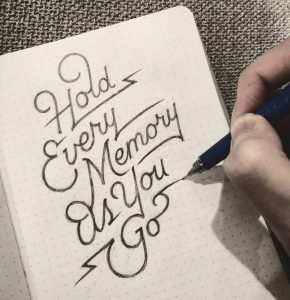 Hold
Every
Memory
As You
Go